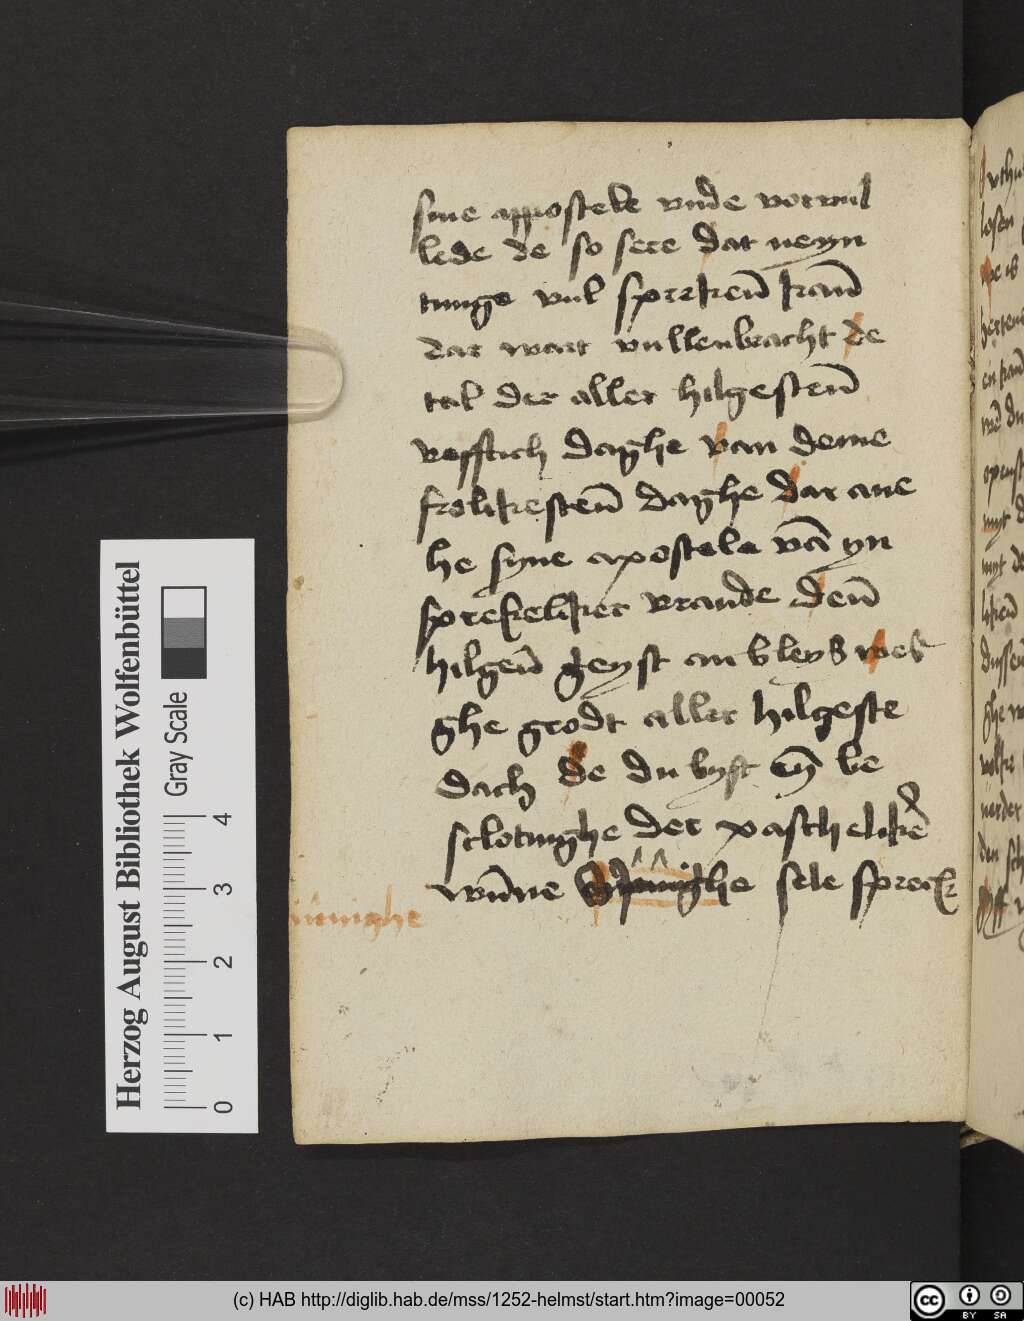 sine appostele vnde vorvul
lede de so sere dat neyn
tunge vul sprekeñ kañ
dat wart vullenbracht de
tal der aller hilgesteñ
veffstich daghe van deme
frolikesteñ daghe dar ane
he syne apostele vā yn
sprekeliker vrande deñ
hilgeñ geyst an bleys wes
ghe grodt aller hilgeste
dach de du byst eyn be
slotinghe der paschelikē
wūne ynnighe sele spreck
innighe
Herzog August Bibliothek Wolfenbüttel
Gray Scale
0 1 2 3 4
(c) HAB http://diglib.hab.de/mss/1252-helmst/start.htm?image=00052
cc BY SA